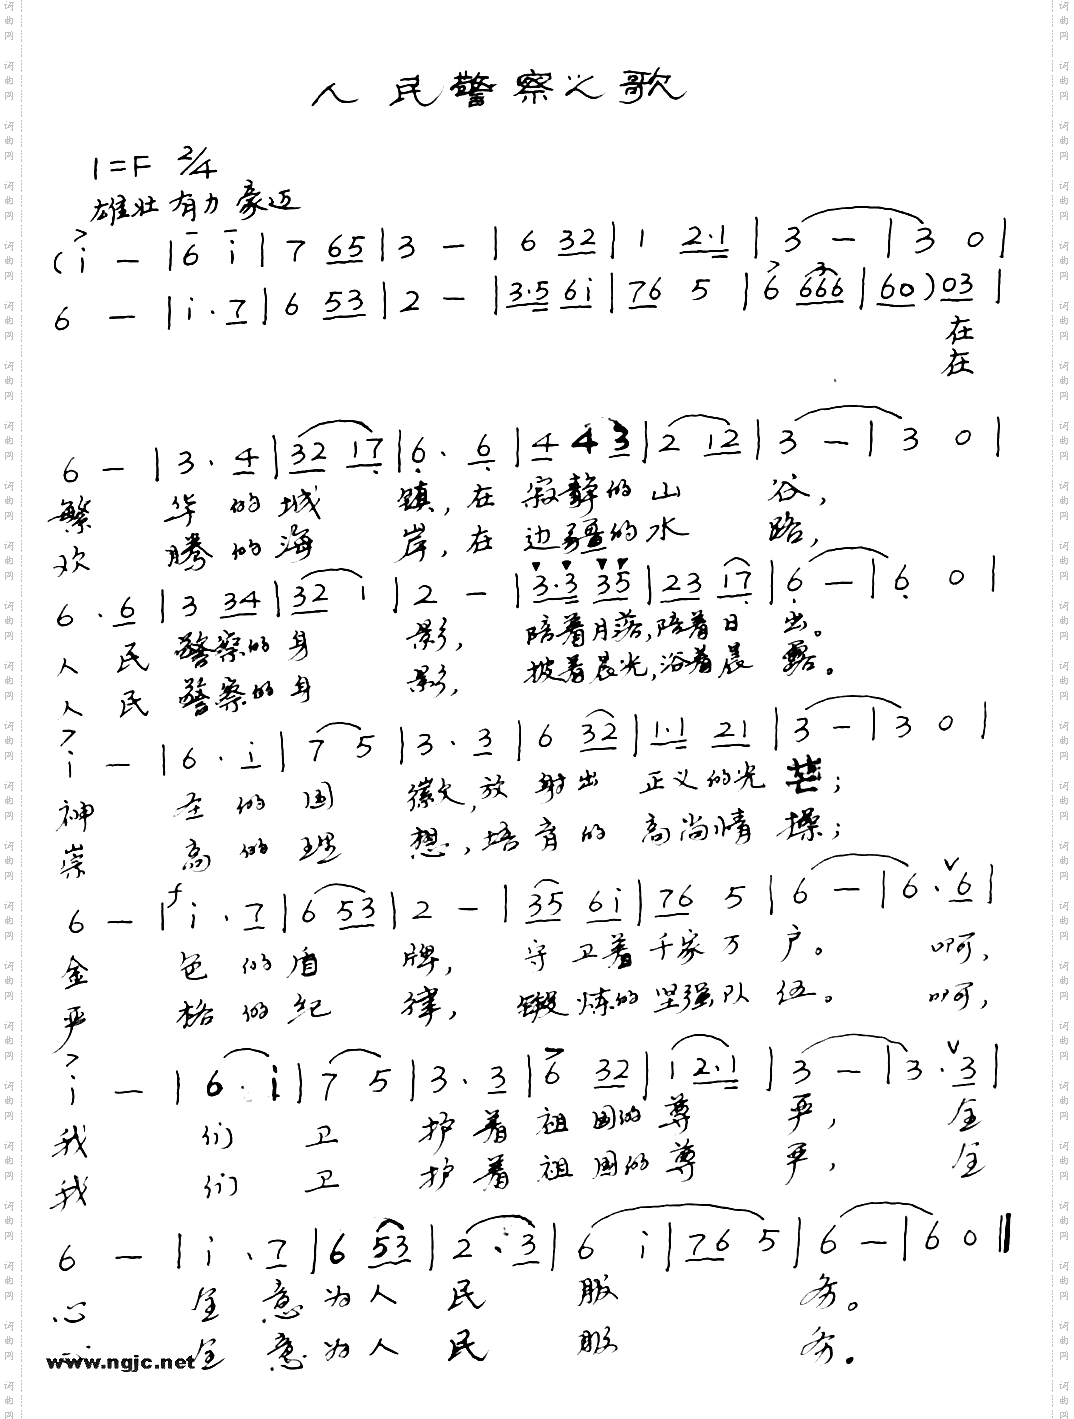 人民警察之歌
1=F 2/4
雄壮 有力 豪迈
(i — | 6 i | 7 65 | 3 — | 6 32 | 1 2·1 | 3 — | 3 0 |
6 — | i·7 | 6 53 | 2 — | 3·5 6i | 76 5 | 6 666 | 60) 03 |
在
在
6 — | 3·4 | 32 17 | 6·6 | 4 43 | 2 12 | 3 — | 3 0 |
繁 华的城 镇,在 寂静的山 谷,
欢 腾的海 岸,在 边疆的水 路,
6·6 | 3 34 | 32 1 | 2 — | 3·3 35 | 23 17 | 6 — | 6 0 |
人民 警察的身 影, 陪着月落,陪着日 出。
人民 警察的身 影, 披着晨光,浴着晨 露。
i — | 6·i | 7 5 | 3·3 | 6 32 | 1·1 21 | 3 — | 3 0 |
神 圣的国 徽,放射出 正义的光芒;
崇 高的理 想,培育的 高尚情操;
6 — | f i·7 | 6 53 | 2 — | 35 6i | 76 5 | 6 — | 6·6 |
金 色的盾 牌, 守卫着千家万 户。 啊,
严 格的纪 律, 锻炼的坚强队 伍。 啊,
i — | 6·i | 7 5 | 3·3 | 6 32 | 1 2·1 | 3 — | 3·3 |
我 们 卫 护着 祖国的尊 严, 全
我 们 卫 护着 祖国的尊 严, 全
6 — | i·7 | 6 53 | 2·3 | 6 i | 76 5 | 6 — | 6 0 ||
心 全意为人 民 服 务。
心 全意为人 民 服 务。
www.ngjc.net
词曲网